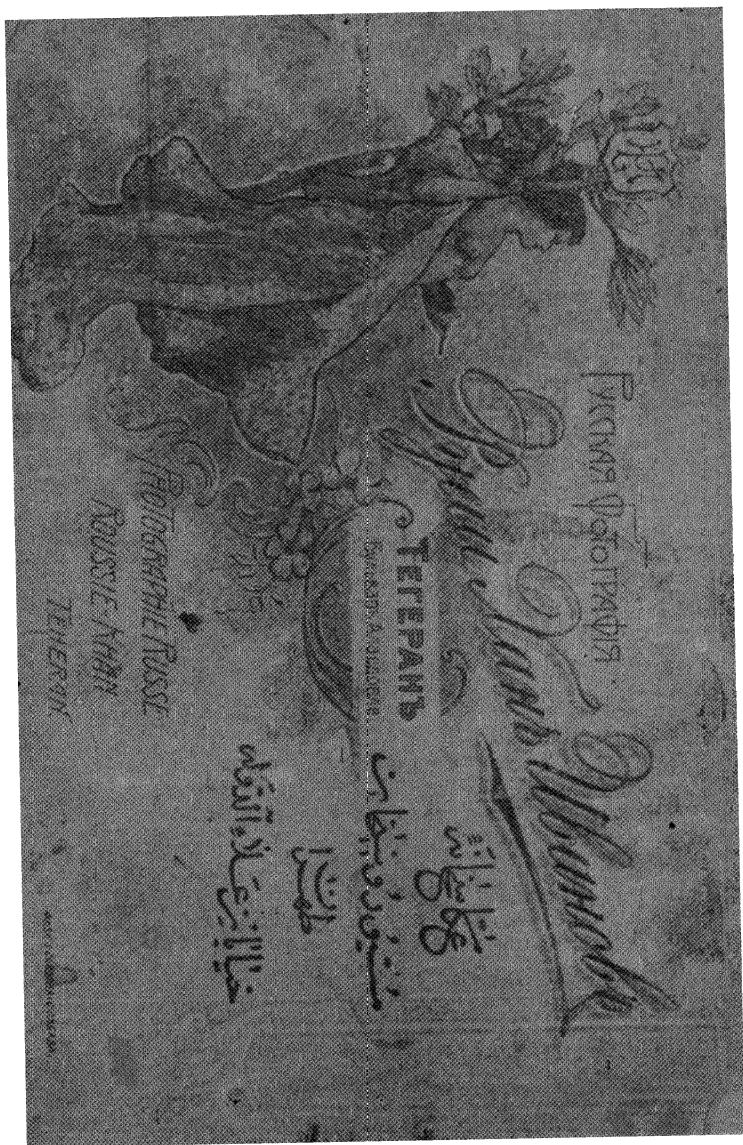 Русская Фотографія
Русси Ханъ Ивановъ
ТЕГЕРАНЪ
عکاسخانه
مسیو روسیخان
طهران
خیابان علاءالدوله
PHOTOGRAPHIE RUSSE
ROUSSIE KHAN
TEHERAN